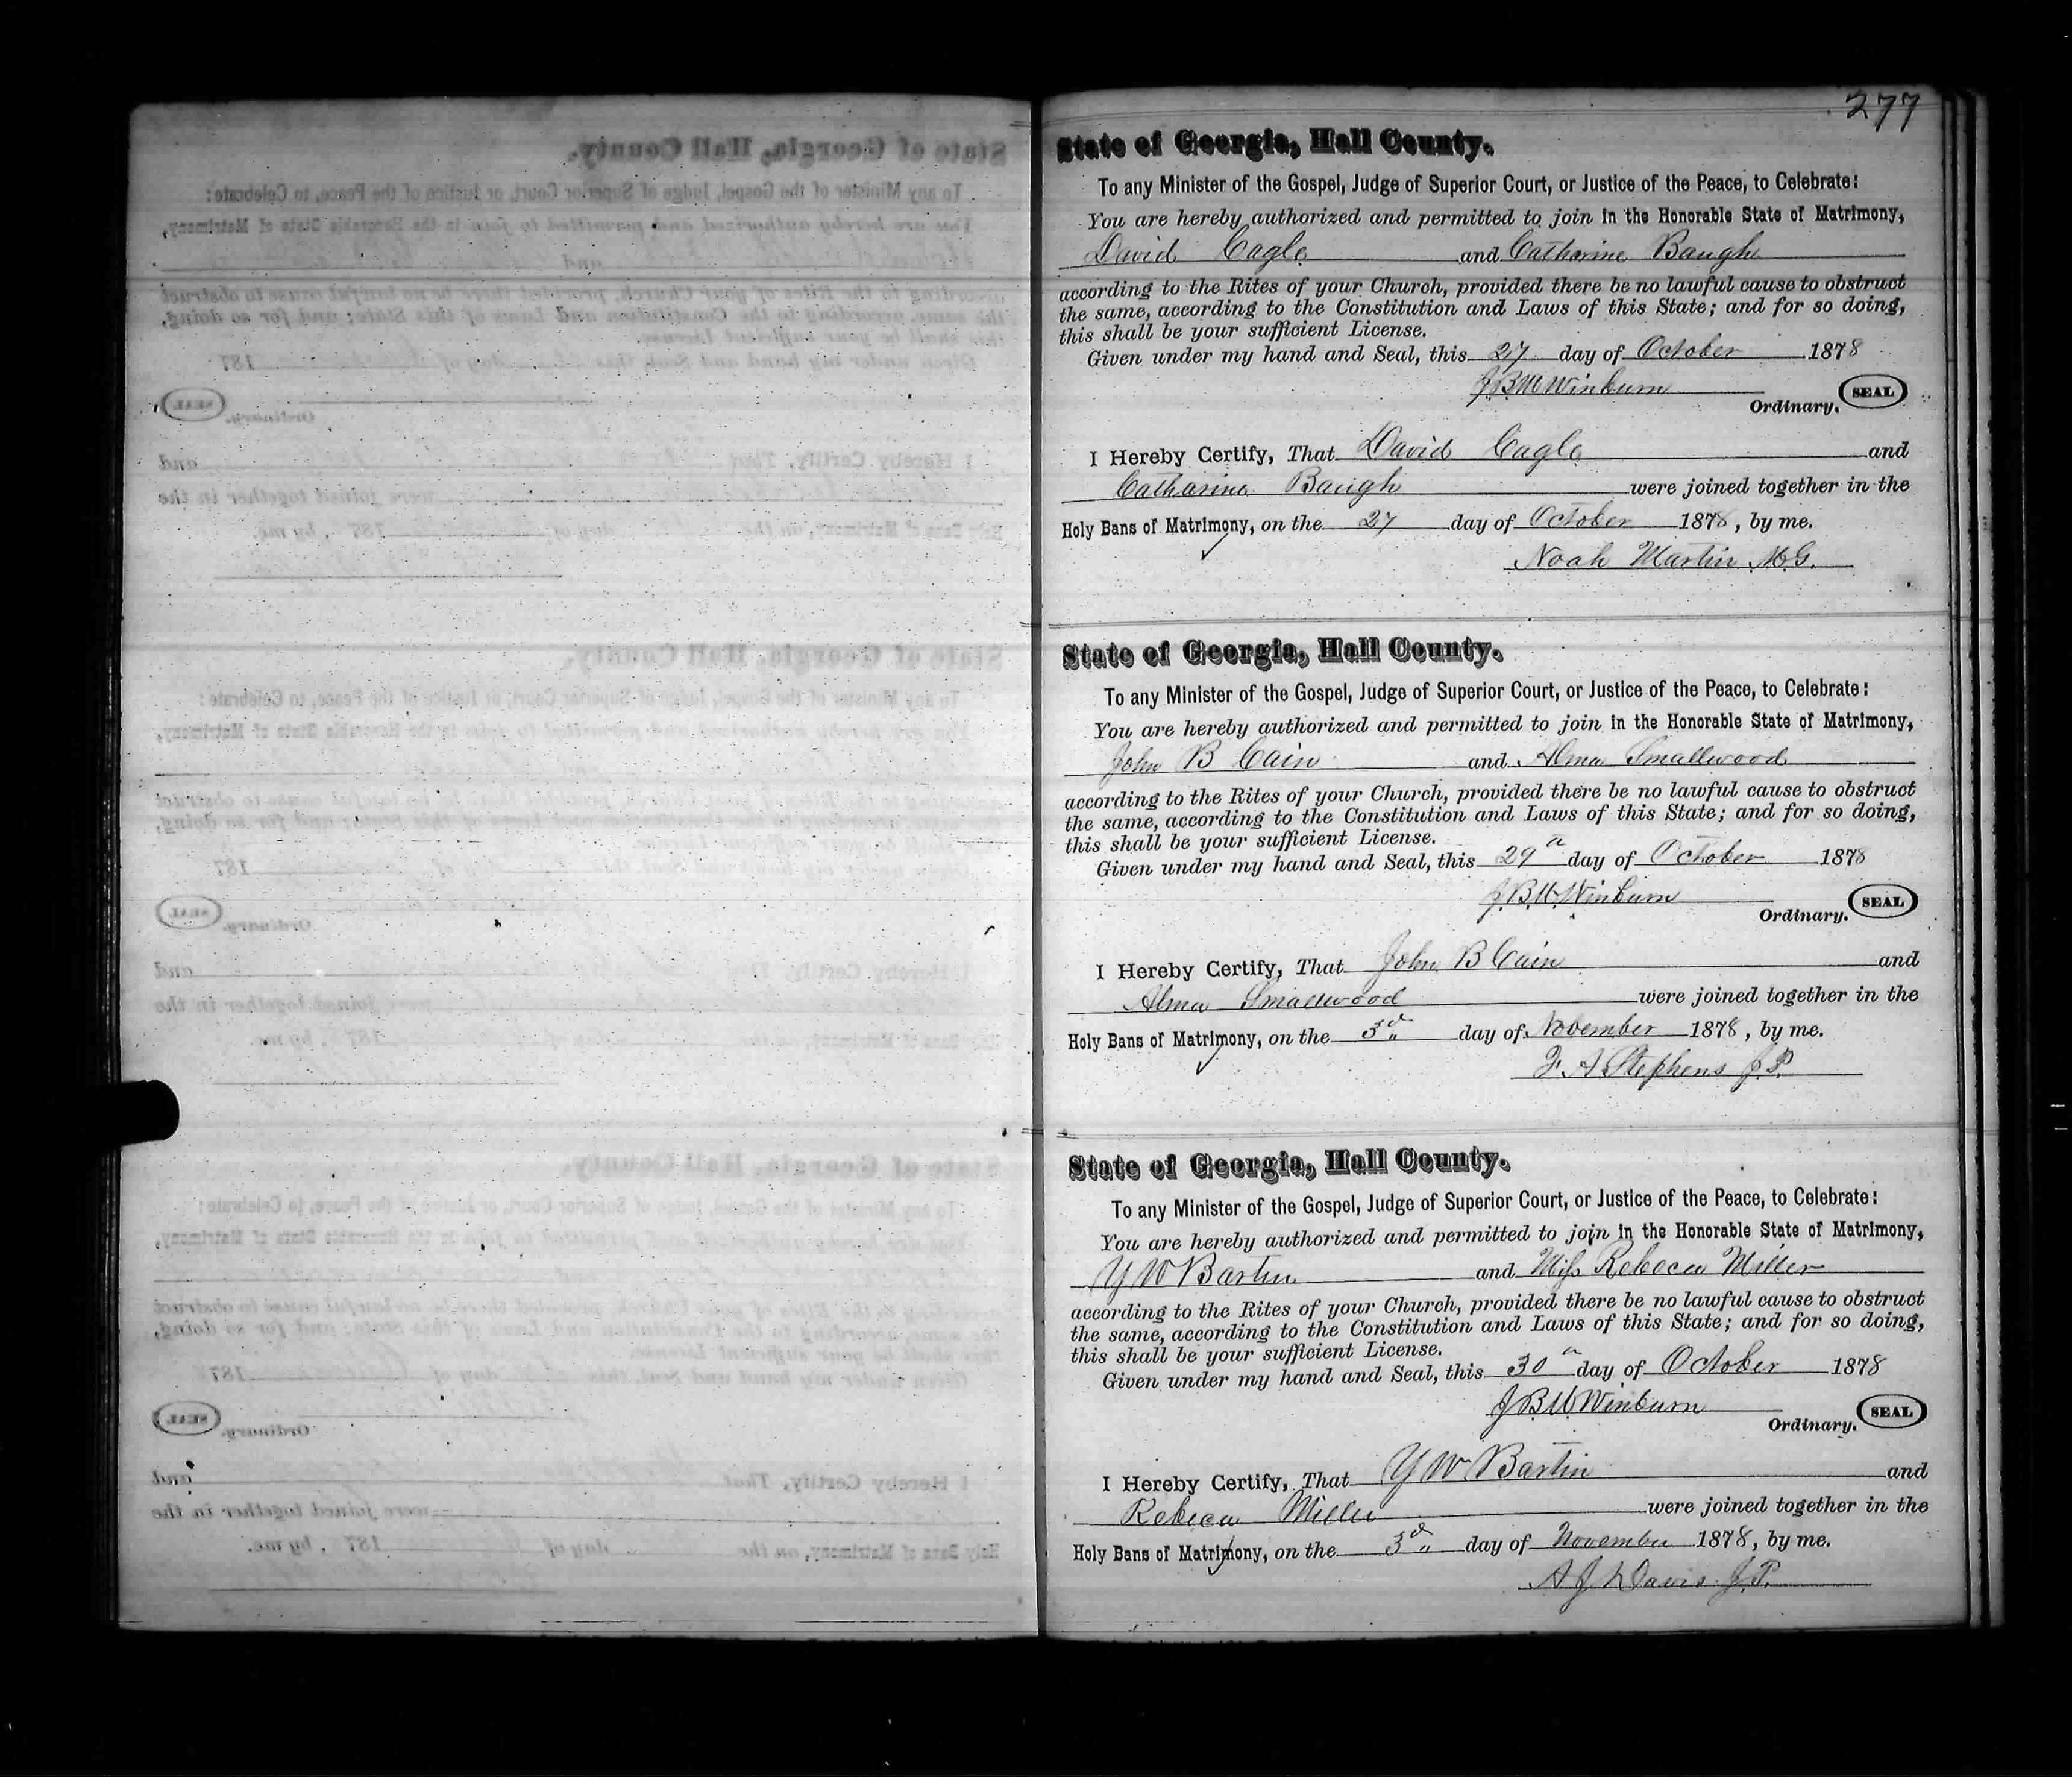 277
State of Georgia, Hall County.
To any Minister of the Gospel, Judge of Superior Court, or Justice of the Peace, to Celebrate:
You are hereby authorized and permitted to join in the Honorable State of Matrimony,
David Cagle and Catharine Baugh
according to the Rites of your Church, provided there be no lawful cause to obstruct
the same, according to the Constitution and Laws of this State; and for so doing,
this shall be your sufficient License.
Given under my hand and Seal, this 27 day of October 1878
J.B.M. Winburn
Ordinary. SEAL
I Hereby Certify, That David Cagle and
Catharine Baugh were joined together in the
Holy Bans of Matrimony, on the 27 day of October 1878, by me.
Noah Martin M.G.
State of Georgia, Hall County.
To any Minister of the Gospel, Judge of Superior Court, or Justice of the Peace, to Celebrate:
You are hereby authorized and permitted to join in the Honorable State of Matrimony,
John B Cain and Alma Smallwood
according to the Rites of your Church, provided there be no lawful cause to obstruct
the same, according to the Constitution and Laws of this State; and for so doing,
this shall be your sufficient License.
Given under my hand and Seal, this 29th day of October 1878
J.B.M. Winburn
Ordinary. SEAL
I Hereby Certify, That John B Cain and
Alma Smallwood were joined together in the
Holy Bans of Matrimony, on the 3d day of November 1878, by me.
F. A. Stephens J.P.
State of Georgia, Hall County.
To any Minister of the Gospel, Judge of Superior Court, or Justice of the Peace, to Celebrate:
You are hereby authorized and permitted to join in the Honorable State of Matrimony,
Y W Bartin and Miss Rebeca Miller
according to the Rites of your Church, provided there be no lawful cause to obstruct
the same, according to the Constitution and Laws of this State; and for so doing,
this shall be your sufficient License.
Given under my hand and Seal, this 30th day of October 1878
J.B.M. Winburn
Ordinary. SEAL
I Hereby Certify, That Y W Bartin and
Rebeca Miller were joined together in the
Holy Bans of Matrimony, on the 3d day of November 1878, by me.
A J Davis J.P.